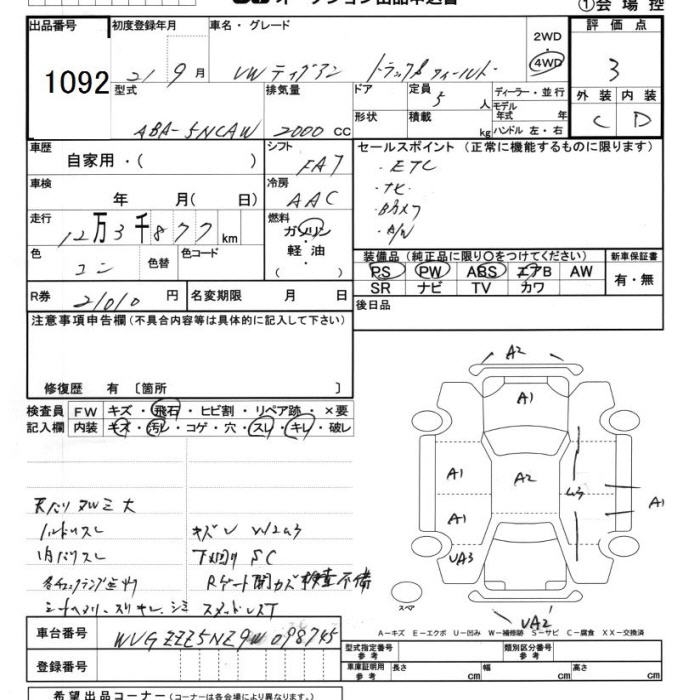 オークション出品申込書 ①会場控
出品番号 初度登録年月 車名・グレード 評価点
1092 21 9月 VWティグアン トラック&フィールド 2WD 4WD 3
型式 排気量 ドア 定員 ディーラー・並行 外装 内装
ABA-5NCAW 2000 CC 5 人 モデル年式 年 C D
形状 積載 kg ハンドル 左・右
車歴 シフト セールスポイント (正常に機能するものに限ります)
自家用・( ) FA7 ・ETC
車検 冷房 ・ナビ
年 月( 日) AAC ・Bカメラ
走行 燃料 ・A/W
12万3千877km ガソリン・軽油 ( )
色 色替 色コード 装備品 (純正品に限り○をつけてください) 新車保証書
コン PS PW ABS エアB AW 有・無
SR ナビ TV カワ
R券 21010 円 名変期限 月 日 後日品
注意事項申告欄 (不具合内容等は具体的に記入して下さい)
修復歴 有 〔箇所 〕
検査員 FW キズ・飛石・ヒビ割・リペア跡・×要
記入欄 内装 キズ・汚レ・コゲ・穴・スレ・キレ・破レ
A2
A1
A1 A2 A1
A1
UA3
UA2
スペア
ハンドルスレ
内バリスレ 下廻りSC
Rゲート開カズ 検査不備
A-キズ E-エクボ U-凹み W-補修跡 S-サビ C-腐食 XX-交換済
車台番号 WVGZZZ5NZ9W098745
型式指定番号 参考 類別区分番号 参考
登録番号 車庫証明用 参考 長さ cm 幅 cm 高さ cm
希望出品コーナー (コーナーは各会場により異なります。)